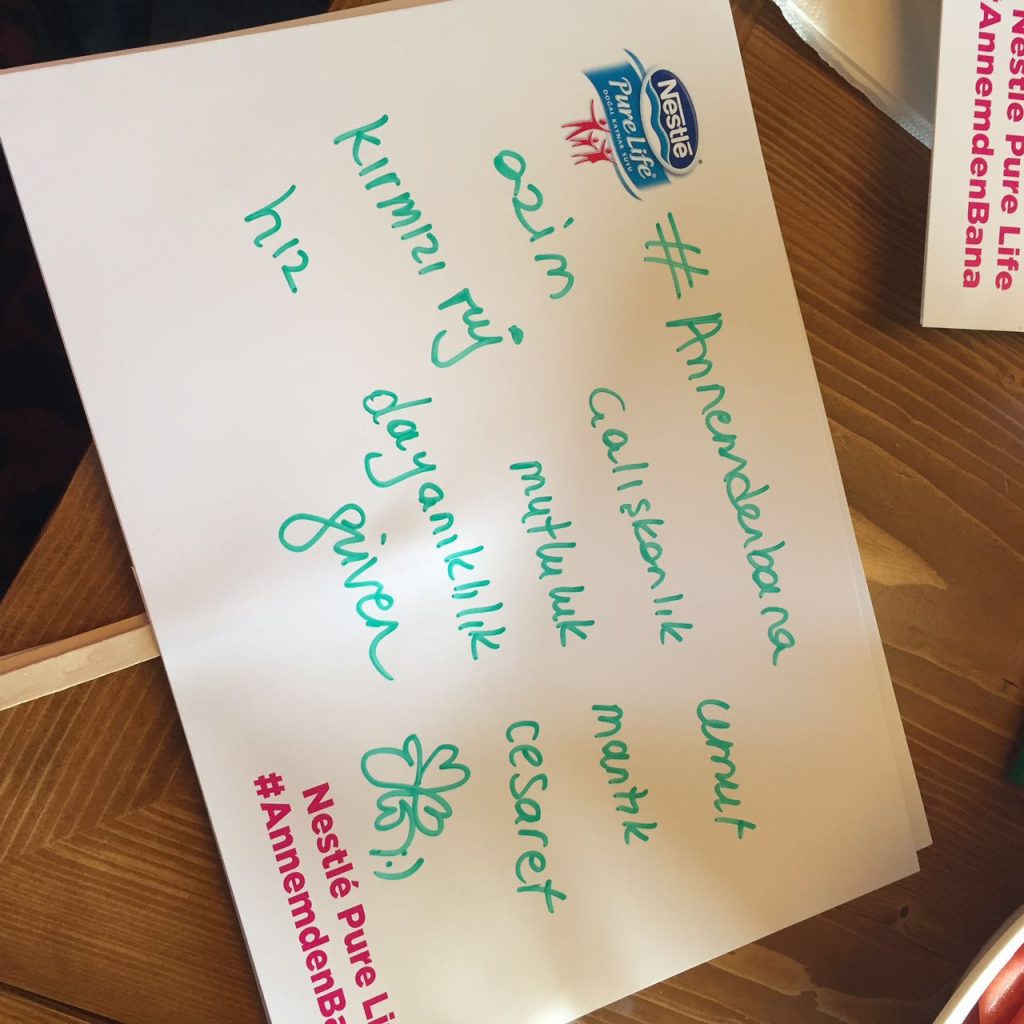 Nestlé
Pure Life
DOĞAL KAYNAK SUYU
#Annemdenbana
azim
çalışkanlık
umut
kırmızı ruj
mutluluk
mantık
hız
dayanıklılık
cesaret
güven
:)
Nestlé Pure Li
#AnnemdenBa
Nestlé Pure Life
#AnnemdenBana